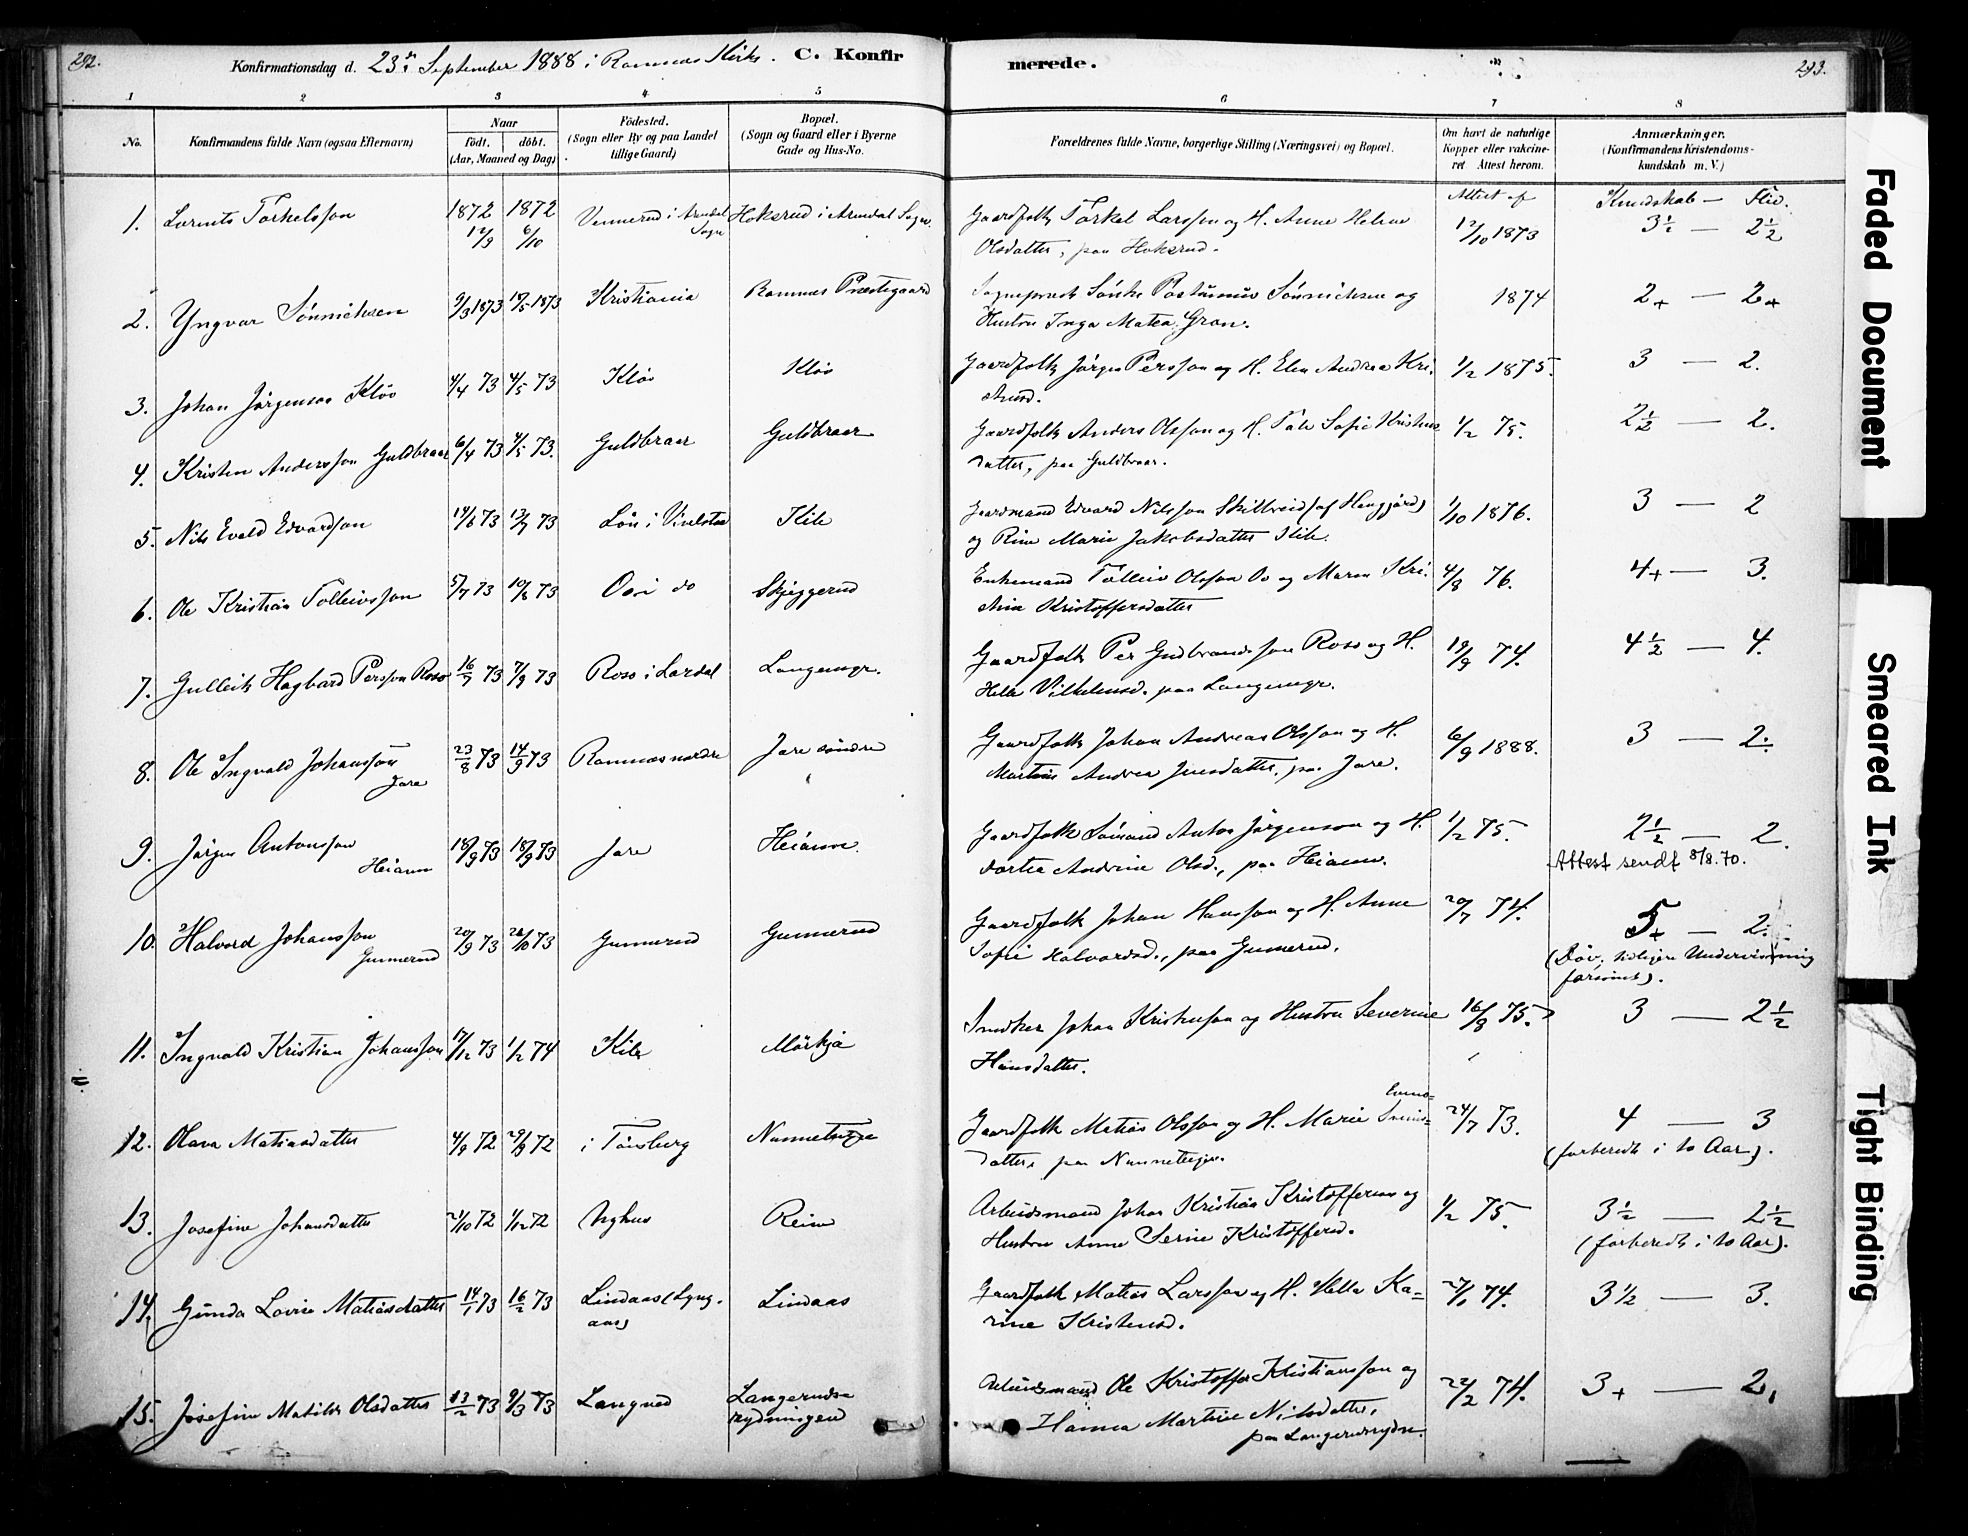 292.
Konfirmationsdag d. 23de September 1888 i Ramnæs Kirke. C. Konfir
merede.
293.
1 2 3 4 5 6 7 8
No.
Konfirmandens fulde Navn (ogsaa Efternavn)
Naar
födt. döbt.
(Aar, Maaned og Dag)
Födested.
(Sogn eller By og paa Landet
tillige Gaard)
Bopæl.
(Sogn og Gaard eller i Byerne
Gade og Hus-No.
Forældrenes fulde Navne, borgerlige Stilling (Næringsvei) og Bopæl.
Om havt de naturlige
Kopper eller vakcine-
ret Attest herom.
Anmærkninger.
(Konfirmandens Kristendoms-
kundskab m. V.)
Attest af
Kundskab — Flid.
1. Lorents Torkelsson 1872 12/9 1872 6/10 i Arendal Sogn Hoksrud i Arendal Sogn. Gaardfolk Torkel Larsson og H. Anne Helene
Olsdatter, paa Hoksrud. 12/10 1873 3½ — 2½
2. Yngvar Sönnichsen 9/3 1873 18/5 1873 Kristiania Ramnæs Præstegaard Sogneprest Sönke Postumus Sönnichsen og
Hustru Inga Matea Gran. 1874 2+ — 2+
3. Johan Jörgensen Klöv 4/4 73 4/5 73 Klöv Klöv Gaardfolk Jörgen Persson og H. Elen Andrea Kri-
stensd. 1/2 1875. 3 — 2.
4. Kristen Andersson Guldbraar 6/4 73 4/5 73. Guldbraar Guldbraar Gaardfolk Anders Olsson og H. Tale Sofie Kristens
datter, paa Guldbraar. 1/2 75. 2½ — 2.
5. Nils Evald Edvardson 14/6 73 13/7 73 i Vivelstad Kile Gaardmand Edvard Nilsson
og Rine Marie Jakobsdatter Kile. 1/10 1876. 3 — 2
6. Ole Kristian Tolleivsson 5/7 73 10/8 73 i do Skjeggerud Enkemand Tolleiv Olsson og Maren Kri-
stine Kristoffersdatter 4/8 76. 4+ — 3.
7. Gulleik Hagbard Persson Ross 16/7 73 7/9 73 Ross i Lardal Langemyr. Gaardfolk Per Gudbrandsson Ross og H.
Helle Vilhelmsd. paa Langemyr. 19/9 74. 4½ — 4.
8. Ole Ingvald Johansson
Jare 23/8 73 14/9 73 Ramnæs nordre Jare söndre Gaardfolk Johan Andreas Olsson og H.
Martine Andrea Jensdatter, paa Jare. 6/9 1888. 3 — 2.
9. Jörgen Antonsson
Heiann 18/9 73 18/9 73 Jare Heiann. Gaardfolk Sömand Anton Jörgensen og H.
Dortea Andrine Olsd., paa Heiann. 1/2 75. 2½ — 2.
Attest sendt 8/8.70.
10. Halvord Johansson
Gunnerud 20/9 73 26/10 73 Gunnerud Gunnerud Gaardfolk Johan Hansson og H. Anne
Sofie Halvordsd., paa Gunnerud. 20/7 74. 5+ — 2.
(Döv, tidligere Undervisning
forsömt).
11. Ingvald Kristian Johansson 17/12 73 1/2 74 Kile Mörkja Snedker Johan Kristensson og Hustru Severine
Hansdatter. 16/8 75. 3 — 2½
12. Olava Matiasdatter 4/9 72 29/9 72 i Tönsberg Nanneteigen Gaardfolk Matias Olsson og H. Marie
datter, paa Nanneteigen. 24/7 73. 4 — 3
(forberedt i to Aar).
13. Josefine Johansdatter 21/10 72 1/12 72 Reine Arbeidsmand Johan Kristian Kristofferson og
Hustru Anne Serine Kristoffersd. 1/2 75. 3½ — 2½
(forberedt i to Aar).
14. Gunda Lovise Matiasdatter 14/1 73 16/2 73 Lindaas (Lyng-
aas) Lindaas Gaardfolk Matias Larsson og H. Helle Ka-
rine Kristensd. 27/1 74. 3½ — 3.
15. Josefine Matilde Olsdatter 13/2 73 9/3 73 Langerud Langeruds-
rydningen Arbeidsmand Ole Kristoffer Kristiansson og
Hanna Martine Nilsdatter,
paa Langerudsrydn. 22/2 74. 3+ — 2.
Faded Document
Smeared Ink
Tight Binding